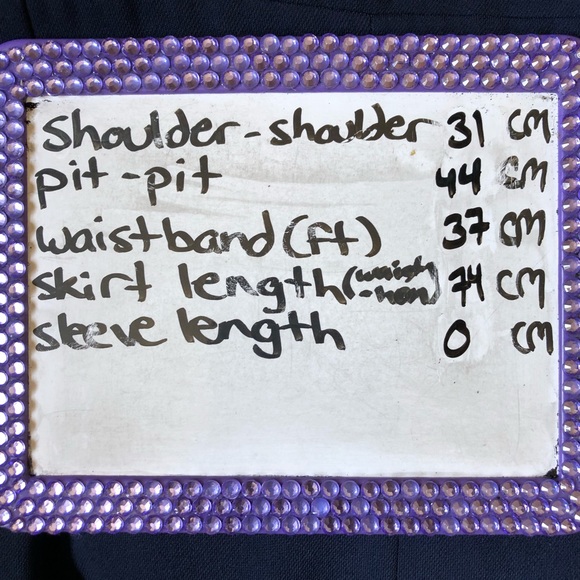 shoulder-shoulder 31 CM
pit-pit 44 CM
waistband (ft) 37 CM
skirt length (waist-hem) 74 CM
sleeve length 0 CM